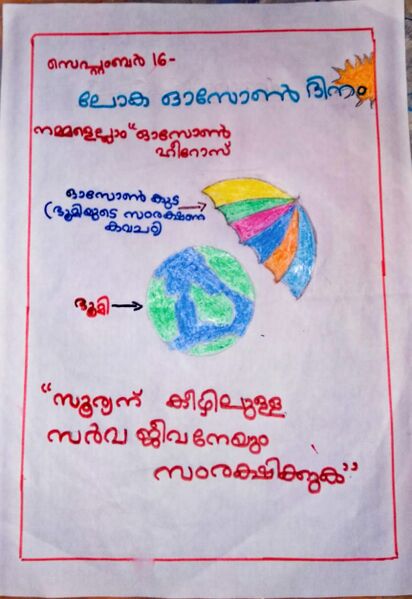 സെപ്റ്റംബർ 16-
ലോക ഓസോൺ ദിനം
നമ്മളെല്ലാം "ഓസോൺ
ഹീറോസ്
ഓസോൺ കുട
(ഭൂമിയുടെ സംരക്ഷണ
കവചം)
ഭൂമി
"സൂര്യന് കീഴിലുള്ള
സർവ ജീവനേയും
സംരക്ഷിക്കുക"